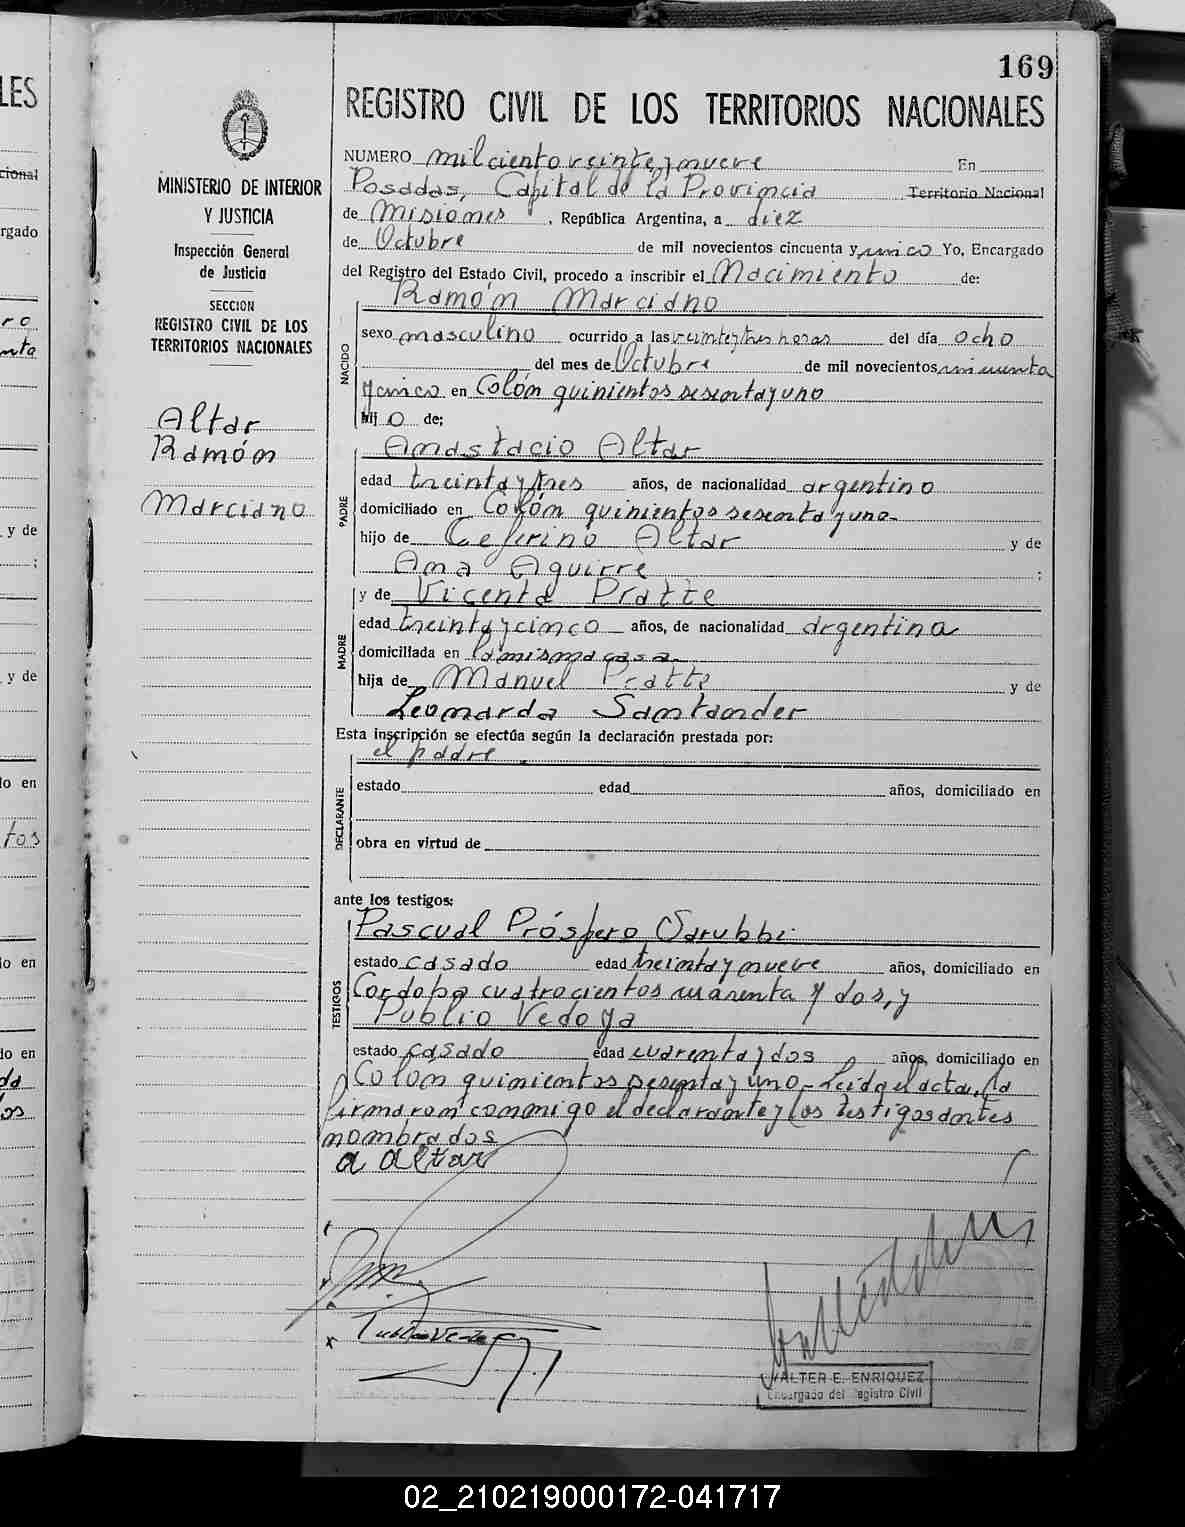 169
REGISTRO CIVIL DE LOS TERRITORIOS NACIONALES
MINISTERIO DE INTERIOR
Y JUSTICIA
Inspección General
de Justicia
SECCION
REGISTRO CIVIL DE LOS
TERRITORIOS NACIONALES
Altar
Ramón
Marciano
NUMERO mil ciento veinte y nueve En
Posadas, Capital de la Provincia Territorio Nacional
de Misiones, República Argentina, a diez
de Octubre de mil novecientos cincuenta y cinco Yo, Encargado
del Registro del Estado Civil, procedo a inscribir el Nacimiento de:
Ramón Marciano
NACIDO
sexo masculino ocurrido a las veinte y tres horas del día ocho
del mes de Octubre de mil novecientos cincuenta
y cinco en Colón quinientos sesenta y uno
hijo de;
Anastacio Altar
PADRE
edad treinta y tres años, de nacionalidad argentino
domiciliado en Colón quinientos sesenta y uno-
hijo de Ceferino Altar y de
Ana Aguirre ;
y de Vicenta Pratte
MADRE
edad treinta y cinco años, de nacionalidad argentina
domiciliada en la misma casa
hija de Manuel Pratte y de
Leonarda Santander
Esta inscripción se efectúa según la declaración prestada por:
el padre
DECLARANTE
estado edad años, domiciliado en
obra en virtud de
ante los testigos:
Pascual Próspero Sarubbi
TESTIGOS
estado casado edad treinta y nueve años, domiciliado en
Cordoba cuatrocientos cuarenta y dos, y
Publio Vedoya
estado casado edad cuarenta y dos años, domiciliado en
Colon quinientos sesenta y uno- Leida el acta, la
firmaron conmigo el declarante y los testigos antes
nombrados
a altar
Publio Vedoya
WALTER E. ENRIQUEZ
Encargado del Registro Civil
02_210219000172-041717